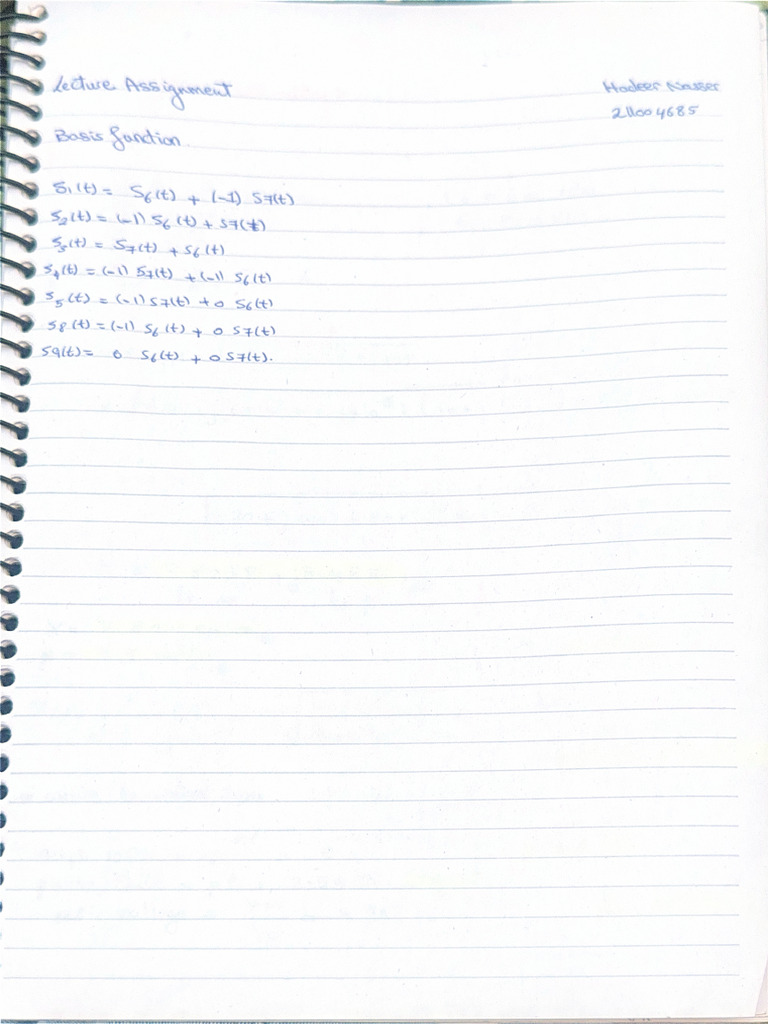 Lecture Assignment
Hadeer Nasser
211004685
Basis function
S1(t) = S6(t) + (-1) S7(t)
S2(t) = (-1) S6(t) + S7(t)
S3(t) = S7(t) + S6(t)
S4(t) = (-1) S7(t) + (-1) S6(t)
S5(t) = (-1) S7(t) + 0 S6(t)
S8(t) = (-1) S6(t) + 0 S7(t)
S9(t) = 0 S6(t) + 0 S7(t).